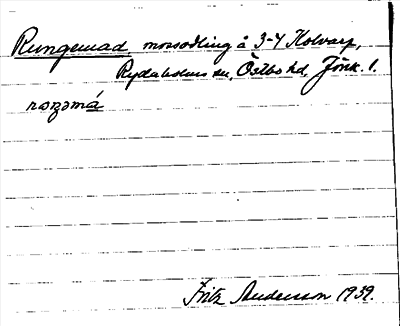 Rungemad, mossodling å 3-4 Kolvarp,
Rydaholms sn, Östbo hd, Jönk. l.
roŋəmá
Fritz Andersson 1939.